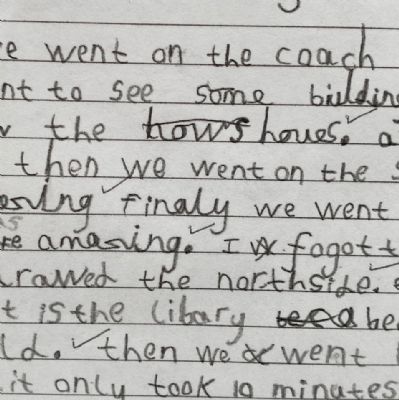 e went on the coach
nt to see some biulding
the hows houes. a
then we went on the s
esing finaly we went
re amasning. I fogot t
rawed the northside.
t is the libary be
ld. then we went
it only took 10 minutes